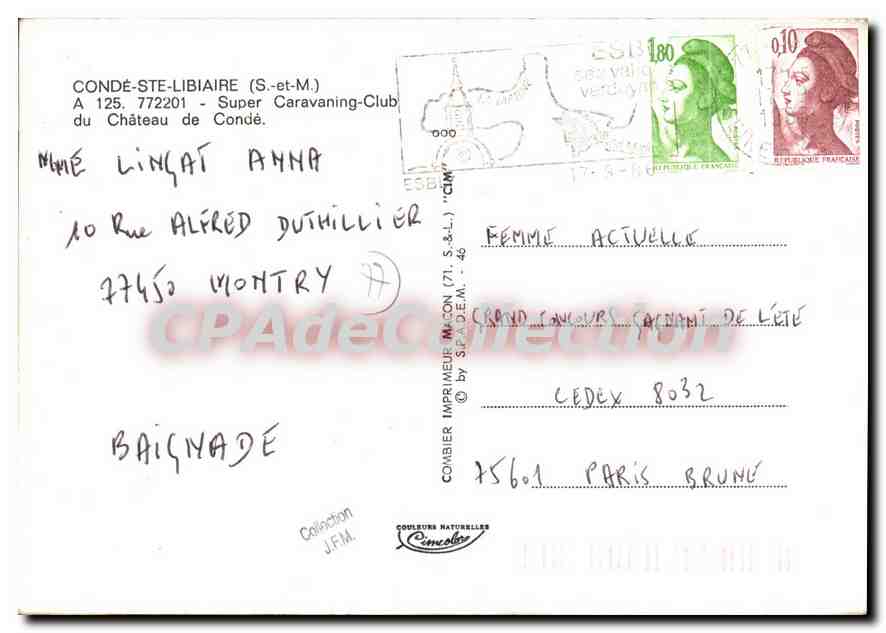 CONDÉ-STE-LIBIAIRE (S.-et-M.)
A 125. 772201 - Super Caravaning-Club
du Château de Condé.
Mme LINÇAT ANNA
10 Rue ALFRED DUTHILLIER
77450 MONTRY
77
BAIGNADE
Collection
J.F.M.
COULEURS NATURELLES
Cimcolor
COMBIER IMPRIMEUR MACON (71. S.-&-L.) "CIM"
© by S.P.A.D.E.M. - 46
ESBL
1,80
0,10
POSTES
REPUBLIQUE FRANÇAISE
REPUBLIQUE FRANÇAISE
FEMME ACTUELLE
GRAND CONCOURS GAGNANT DE L'ÉTÉ
CEDEX 8032
75601 PARIS BRUNE
CPAdeCollection